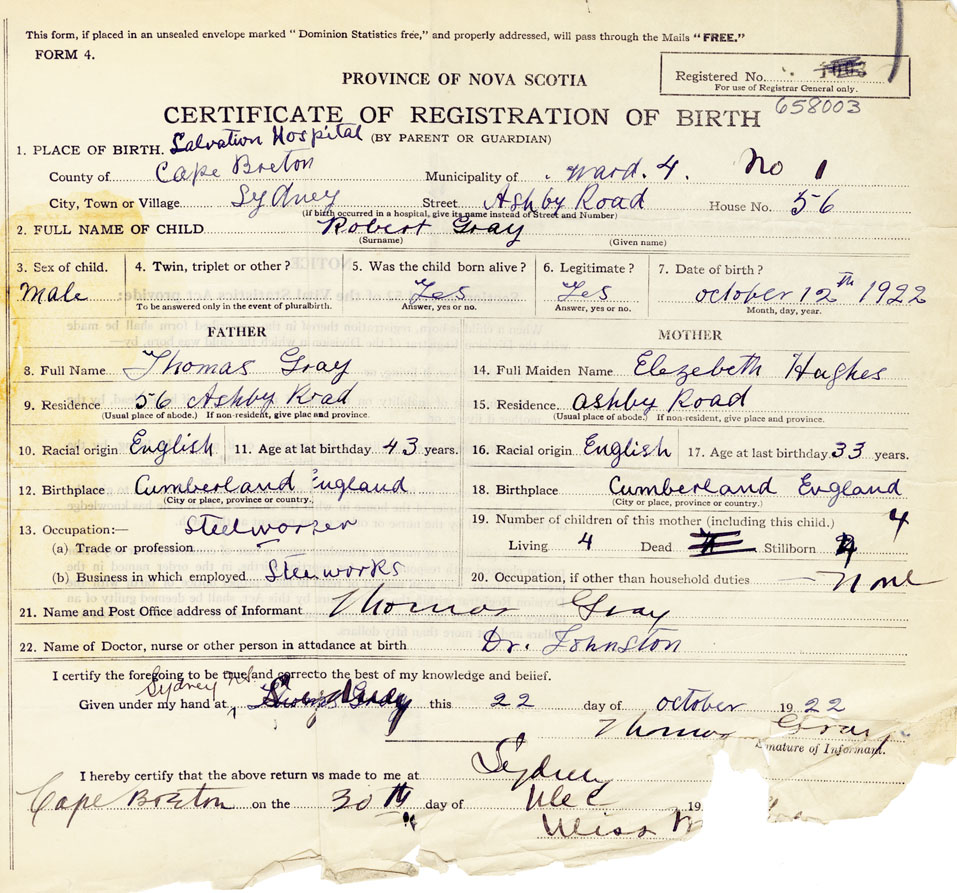 This form, if placed in an unsealed envelope marked "Dominion Statistics free," and properly addressed, will pass through the Mails "FREE."
FORM 4.
PROVINCE OF NOVA SCOTIA
Registered No. 1003
For use of Registrar General only.
658003
CERTIFICATE OF REGISTRATION OF BIRTH
(BY PARENT OR GUARDIAN)
1. PLACE OF BIRTH. Salvation Hospital
County of Cape Breton Municipality of ward. 4. No 1
City, Town or Village Sydney Street Ashby Road House No. 56
(If birth occurred in a hospital, give its name instead of Street and Number)
2. FULL NAME OF CHILD Robert Gray
(Surname) (Given name)
3. Sex of child. 4. Twin, triplet or other? 5. Was the child born alive? 6. Legitimate? 7. Date of birth?
Male Yes Yes october 12th 1922
To be answered only in the event of pluralbirth. Answer, yes or no. Answer, yes or no. Month, day, year.
FATHER MOTHER
8. Full Name Thomas Gray 14. Full Maiden Name Elezebeth Hughes
9. Residence 56 Ashby Road 15. Residence ashby Road
(Usual place of abode.) If non-resident, give plac and province. (Usual place of abode.) If non-resident, give place and province.
10. Racial origin English 11. Age at lat birthday 43 years. 16. Racial origin English 17. Age at last birthday 33 years.
12. Birthplace Cumberland England 18. Birthplace Cumberland England
(City or place, province or country.) (City or place, province or country.)
13. Occupation:— Steelworker 19. Number of children of this mother (including this child.) 4
(a) Trade or profession Living 4 Dead Stillborn
(b) Business in which employed Steelworks 20. Occupation, if other than household duties None
21. Name and Post Office address of Informant Thomas Gray
22. Name of Doctor, nurse or other person in attendance at birth Dr. Johnston
I certify the foregoing to be true and correct to the best of my knowledge and belief.
Sydney N.S.
Given under my hand at this 22 day of october 1922
Thomas Gray
Signature of Informant.
I hereby certify that the above return was made to me at Sydney
Cape Breton on the 30th day of Dec 19
Miss